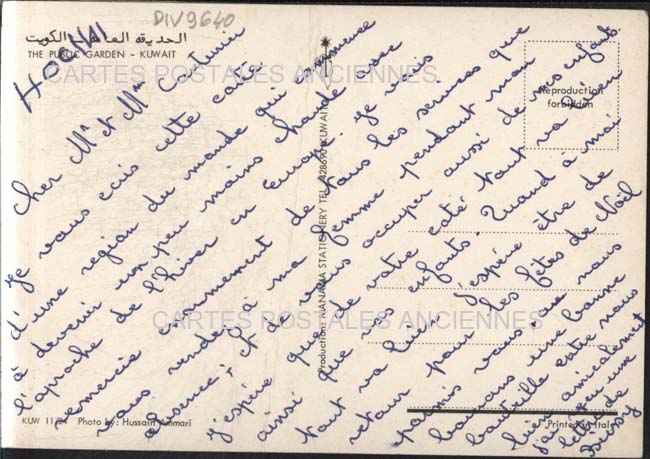 DIV9640
الحديقة العامة - الكويت
THE PUBLIC GARDEN - KUWAIT
CARTES POSTALES ANCIENNES
Reproduction
forbidden
Cher Mr et Mme
Je vous ecris cette carte
d'une region du monde qui commence
à devenir un peu moins chaude avec
l'aproche de l'hiver en Europe. Je vous
remercie enormement de tous les services que
vous rendez à ma femme pendant mon
absence, et de vous occuper aussi de mes enfants.
J'espère que de votre coté tout va bien
ainsi que vos enfants. Quand à moi
tout va bien. J'espère être de
retour pour les fêtes de Noël
parmis vous, que nous
buvions une bonne
bouteille entre nous
bien amicalement
j'ai reçu une
lettre de
Production: MANAMA STATIONERY TEL. 428690 KUWAIT
CARTES POSTALES ANCIENNES
KUW 11/24 Photo by: Hussain Ammari
Printed in Italy